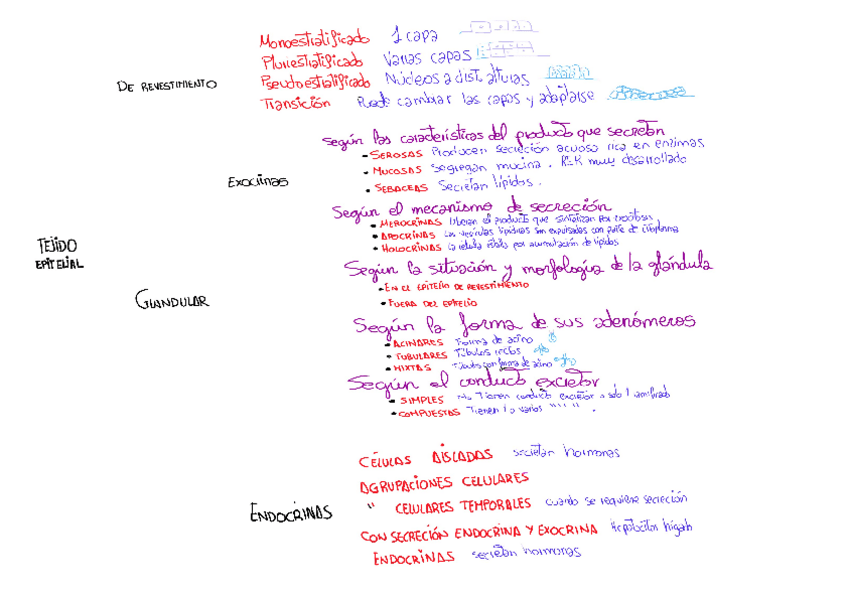 Monoestratificado 1 capa
Pluriestratificado Varias capas
Pseudoestratificado Núcleos a dist. alturas
DE REVESTIMIENTO
Transición Puede cambiar las capas y adaptarse
Según las características del producto que secretan
• SEROSAS Producen secreción acuosa rica en enzimas
• MUCOSAS Segregan mucina. RER muy desarrollado
Exocrinas
• SEBACEAS Secretan lípidos.
Según el mecanismo de secreción
• MEROCRINAS liberan el producto que sintetizan por exocitosis
• APOCRINAS Las vesículas lipídicas son expulsadas con parte de citoplasma
• HOLOCRINAS La célula estalla por acumulación de lípidos
TEJIDO
EPITELIAL
Según la situación y morfología de la glándula
• EN EL EPITELIO DE REVESTIMIENTO
GLANDULAR
• FUERA DEL EPITELIO
Según la forma de sus adenómeros
• ACINARES Forma de acino
• TUBULARES Túbulos rectos
• MIXTAS Túbulos con forma de acino
Según el conducto excretor
• SIMPLES No Tienen conducto excretor o solo 1 ramificado
• COMPUESTAS Tienen 1 o varios " " " " .
CÉLULAS AISLADAS secretan hormonas
AGRUPACIONES CELULARES
" CELULARES TEMPORALES cuando se requiere secreción
ENDOCRINAS
CON SECRECIÓN ENDOCRINA Y EXOCRINA Hepatocitos hígado
ENDOCRINAS secretan hormonas